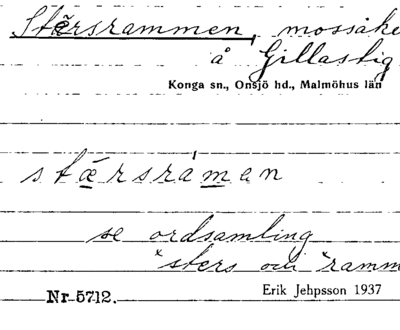 Stärsrammen, mossåke
å Gillastig
Konga sn., Onsjö hd., Malmöhus län
stærsramen
se ordsamling
*sters och *ramm
Nr 5712.
Erik Jehpsson 1937